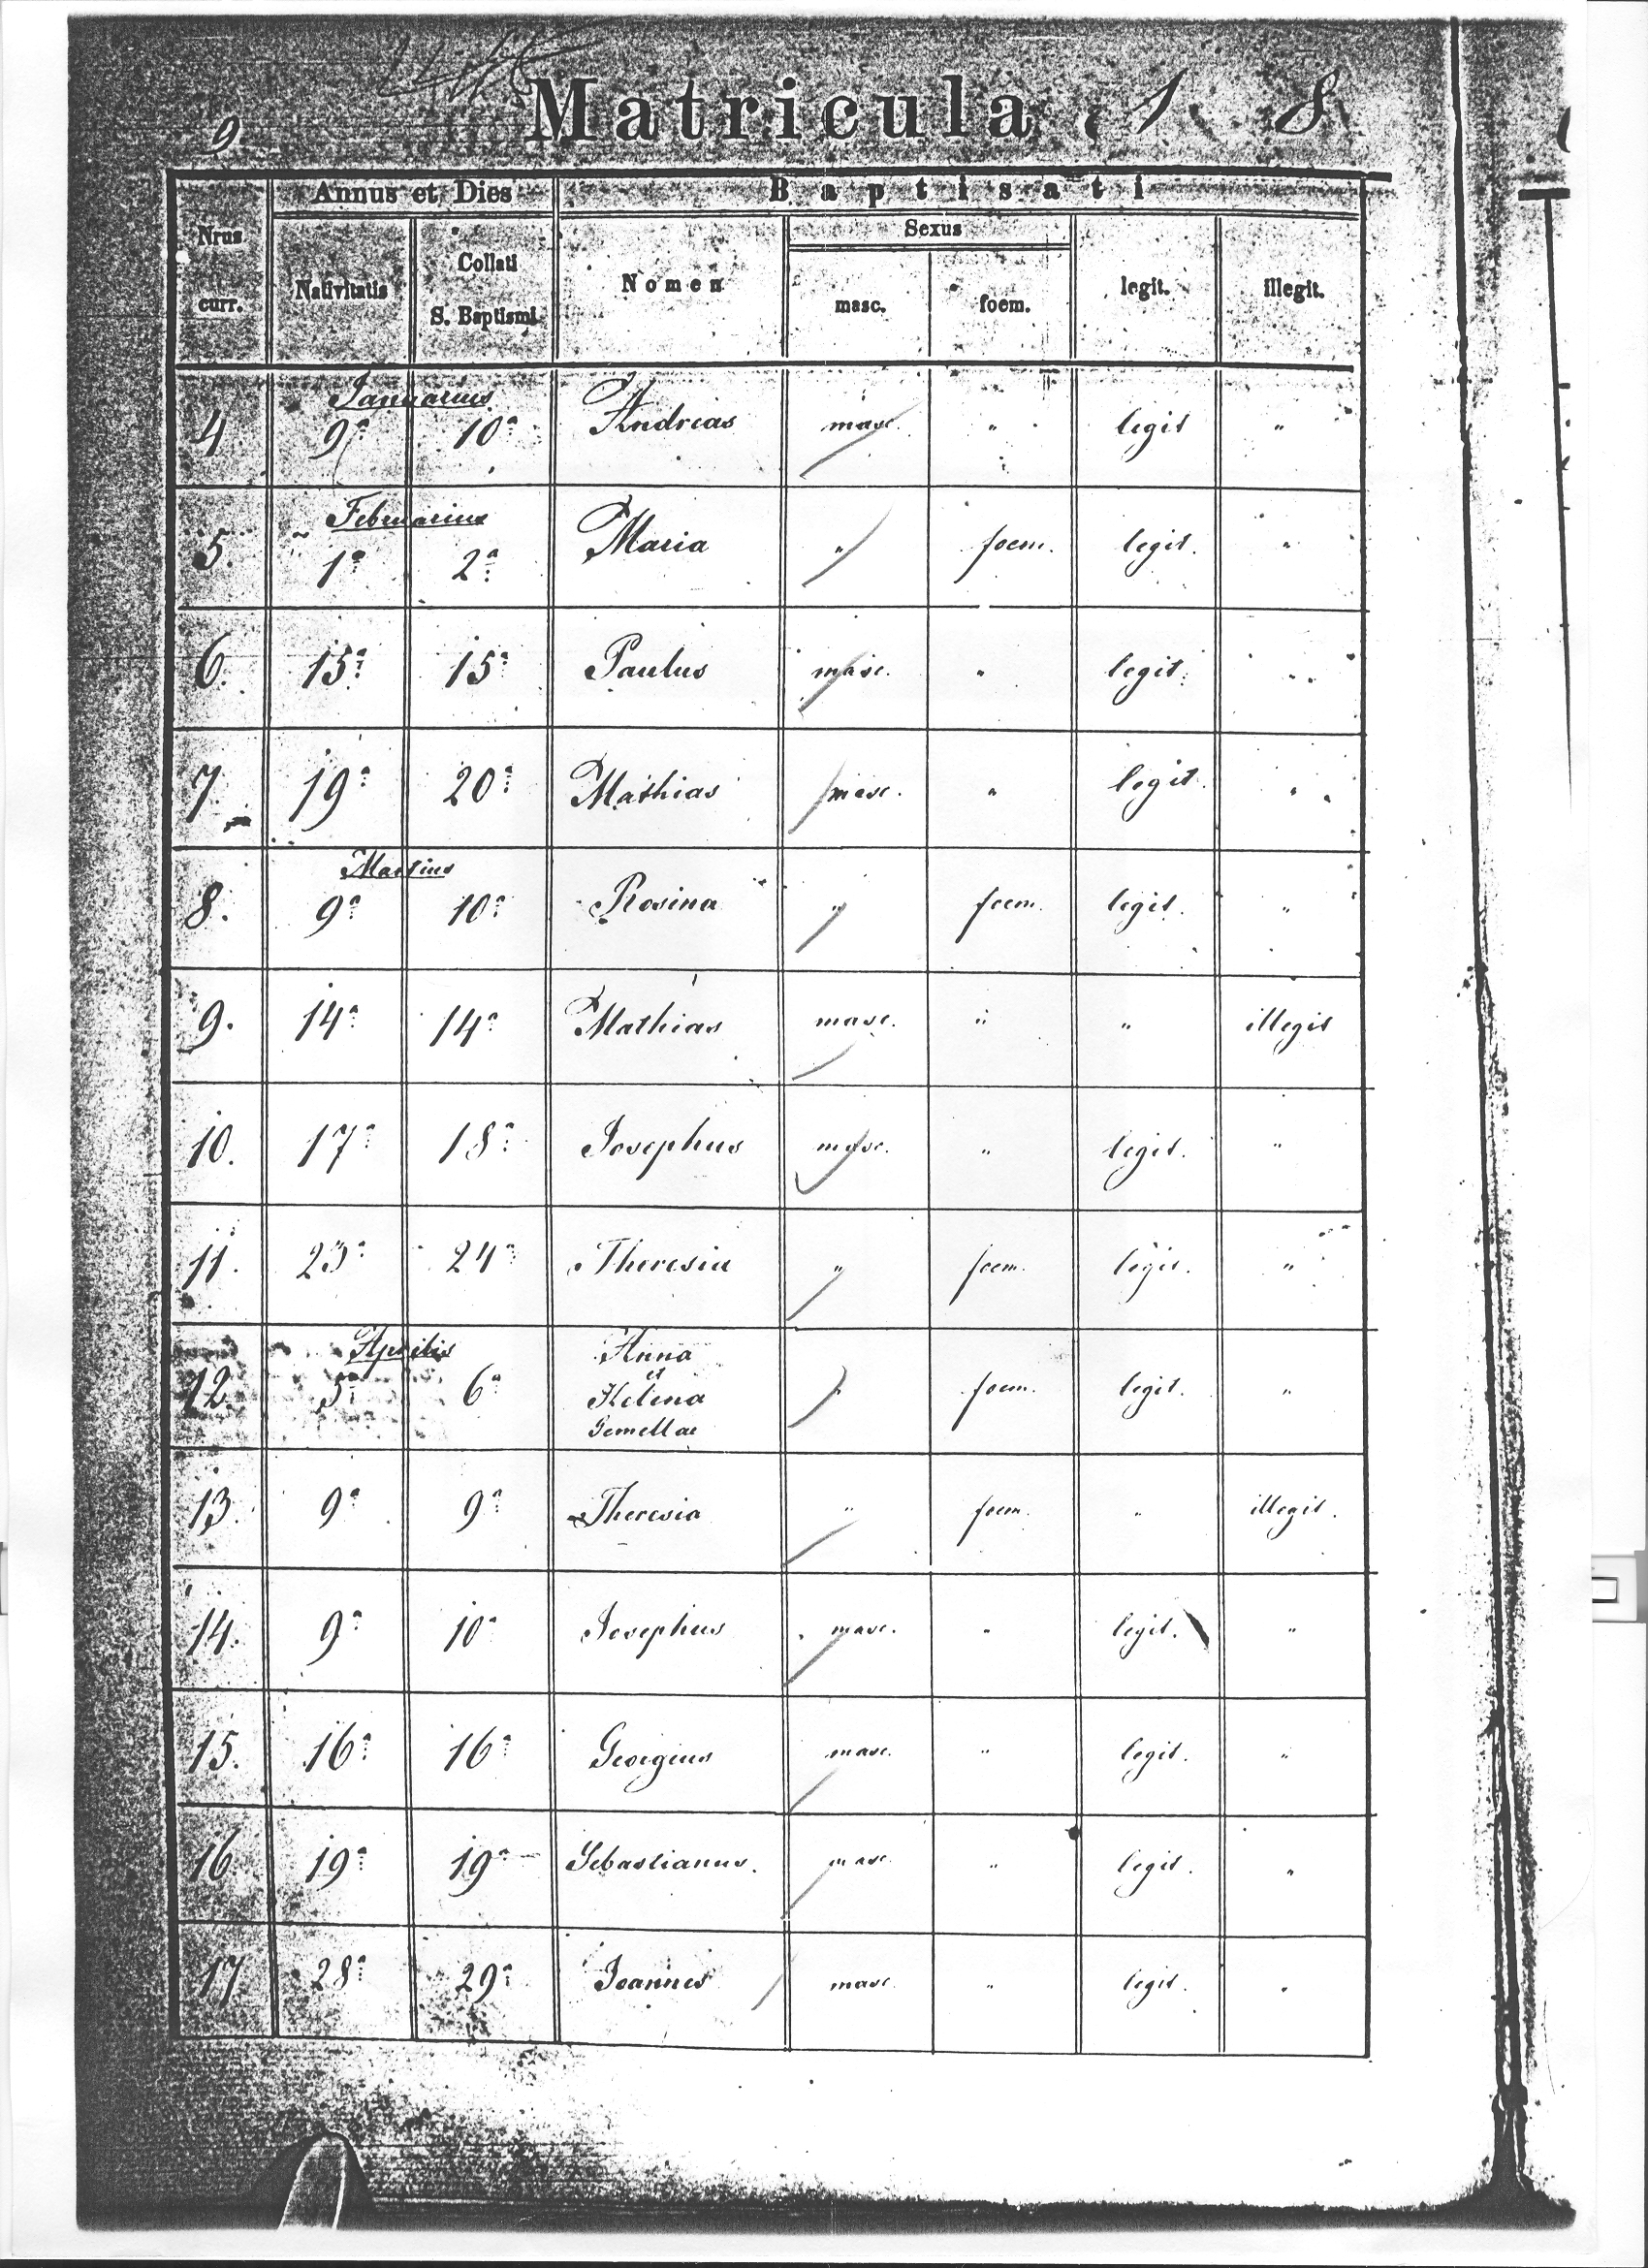 9.
Matricula 1 8
Annus et Dies Baptisati
Nrus curr. Nativitatis Collati S. Baptismi Nomen Sexus masc. foem. legit. illegit.
Januarius
4 9a 10a Andreas masc. " legit "
Februarius
5. 1a 2a Maria " foem. legit. "
6. 15a 15a Paulus masc. " legit. "
7. 19a 20a Mathias masc. " legit. "
Martius
8. 9a 10a Rosina " foem. legit. "
9. 14a 14a Mathias masc. " " illegit
10. 17a 18a Josephus masc. " legit. "
11. 23a 24a Theresia " foem. legit. "
Aprilis
12. 5a 6a Anna et Helena Gemellae " foem. legit. "
13. 9a 9a Theresia " foem. " illegit.
14. 9a 10a Josephus masc. " legit. "
15. 16a 16a Georgius masc. " legit. "
16 19a 19a Sebastianus. masc. " legit. "
17 28a 29a Joannes masc. " legit. "